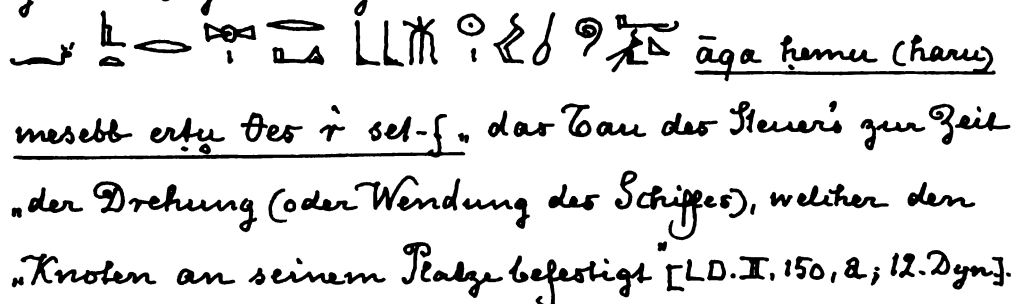 āqa ḥemu (haru)
mesebb erṭu θes r set-f „das Tau des Steuer's zur Zeit
„der Drehung (oder Wendung des Schiffes), welcher den
„Knoten an seinem Platze befestigt" [LD. II, 150, a; 12. Dyn].